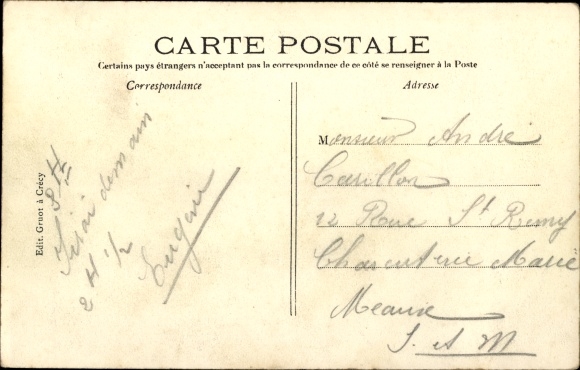 CARTE POSTALE
Certains pays étrangers n'acceptant pas la correspondance de ce côté se renseigner à la Poste
Correspondance
Adresse
Edit. Gruot à Crécy
J'irai demain
2 H 1/2
Eugénie
Monsieur André
Carillon
12 Rue St Remy
Charcuterie Marié
Meaux
S. et M